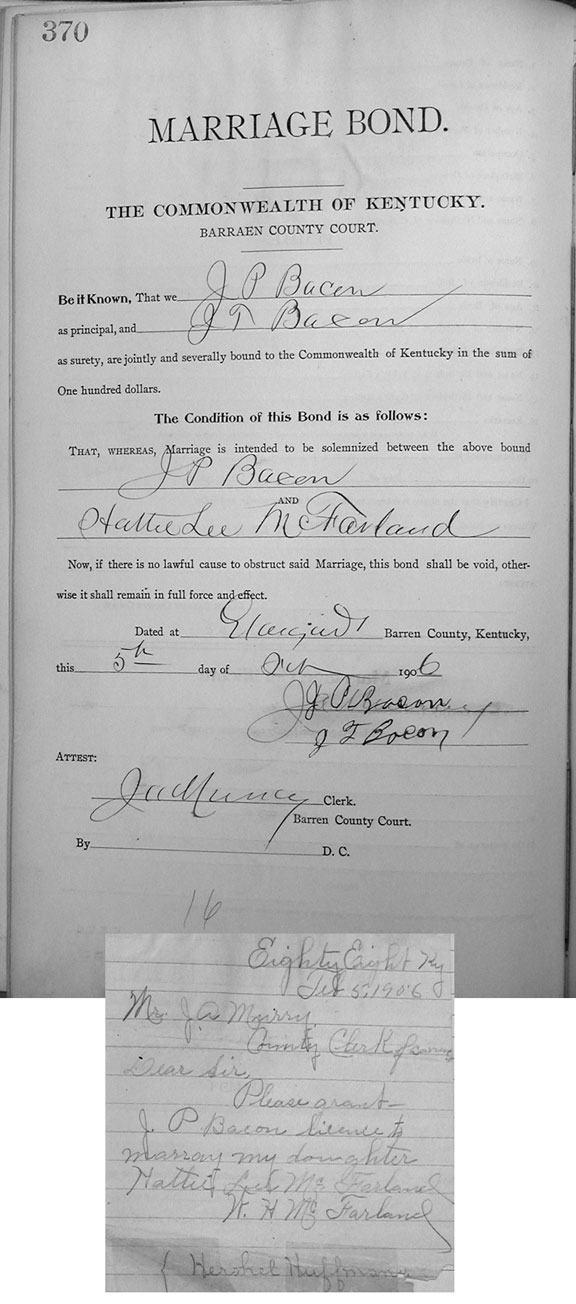 370
MARRIAGE BOND.
THE COMMONWEALTH OF KENTUCKY.
BARRAEN COUNTY COURT.
Be it Known, That we J P Bacon
as principal, and J T Bacon
as surety, are jointly and severally bound to the Commonwealth of Kentucky in the sum of
One hundred dollars.
The Condition of this Bond is as follows:
THAT, WHEREAS, Marriage is intended to be solemnized between the above bound
J P Bacon
AND
Hattie Lee McFarland
Now, if there is no lawful cause to obstruct said Marriage, this bond shall be void, other-
wise it shall remain in full force and effect.
Dated at Barren County, Kentucky,
this 5th day of 1906
J P Bacon
J T Bacon
ATTEST:
Clerk.
Barren County Court.
By D. C.
16
Eighty Eight Ky
Feb 5, 1906
Mr. J. A Murry
County Clerk of
Dear Sir,
Please grant
J. P Bacon licence to
marray my doughter
Hattie Lee Mc Farland
W. H Mc Farland
Hershel Huffman